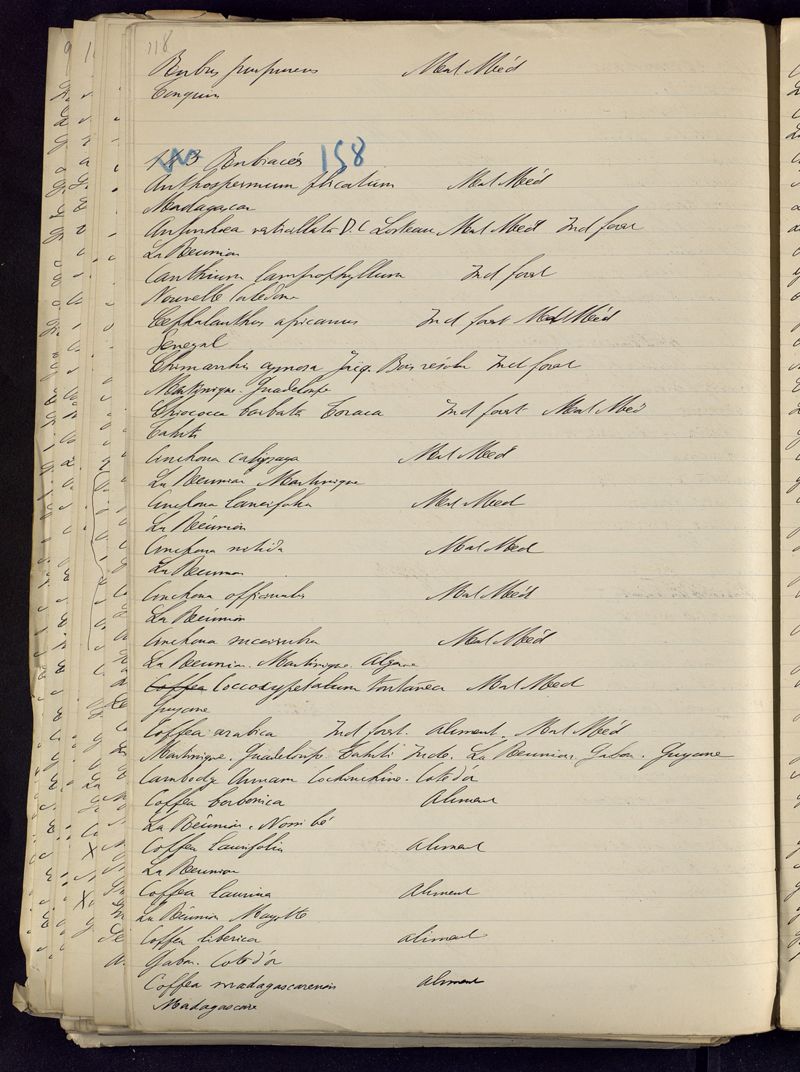 118
Rubus purpureus Mat Méd
Tonquin
Rubiacés 158
Anthospermum Mat Méd
Madagascar
verticillata D.C Losteau Mat Méd Ind forest
La Réunion
Canthium lamprophyllum Ind forest
Nouvelle Calédonie
Cephalanthus africanus Ind forest Mat Méd
Senegal
Chimarrhis cymosa Jacq. Bois resolu Ind forest
Martinique. Guadeloupe
Chiococca barbata Toraca Ind forest Mat Méd
Tahiti
Cinchona calysaya Mat Méd
La Réunion Martinique
Cinchona lancifolia Mat Med
La Réunion
Cinchona nitida Mat Med
La Reunion
Cinchona officinalis Mat Méd
La Réunion
Cinchona succirubra Mat Méd
La Reunion. Martinique. Algerie
Coffea Coccocypselum Tontanea Mat Med
Guyane
Coffea arabica Ind forest. Aliment. Mat Méd
Martinique. Guadeloupe Tahiti Inde. La Reunion. Gabon. Guyane
Cambodge Annam Cochinchine. Cote d'or
Coffea borbonica Aliment
La Réunion. Nossi bé
Coffea laurifolia Aliment
La Reunion
Coffea laurina Aliment
La Réunion Mayotte
Coffea liberica aliment
Gabon. Cote d'or
Coffea madagascarensis Aliment
Madagascar